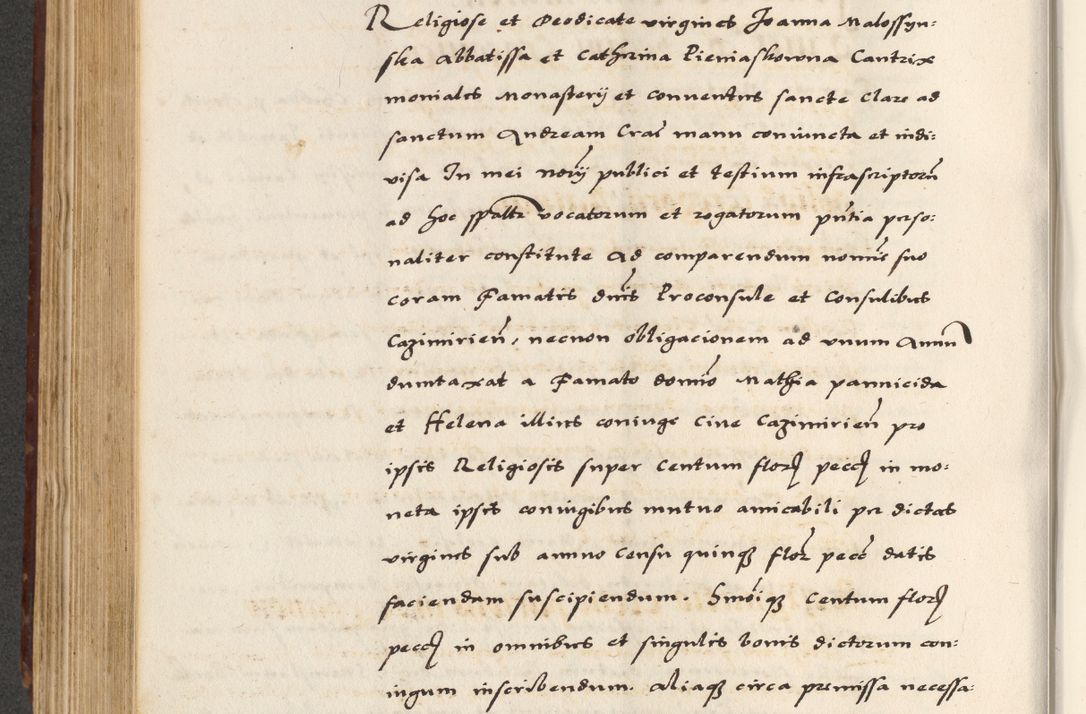 Religiose et Deodicate virgines Joanna Malossyn:
ska Abbatissa et Cathrina Pieniaskowna Cantrix
moniales Monasterij et conventus sancte Clare ad
sanctum Andream Crac̄ manu coniuncta et indi:
visa In mei nōrij publici et testium infrascriptorū
ad hoc spāltr vocatorum et rogatorum pn̄tia perso:
naliter constitute Ad comparendum nomīe suo
coram Famatis dn̄is Proconsule et Consulibus
Cazimirien̄, necnon obligacionem ad unum Annū
dumtaxat a Famato domīo Mathia pannicida
et Helena illius coniuge Cive Cazimirien̄ pro
ipsis Religiosis super Centum flor̄ pecc̄ in mo:
neta ipsis coniugibus mutuo amicabili per dictas
virgines sub annuo censu quinqꝫ flor̄ pecc̄ datis
faciendam suscipiendum. Hm̄oīqꝫ Centum flor̄
pecc̄ in omnibus et singulis bonis dictorum con:
iugum inscribendum. aliaqꝫ circa premissa necessa: